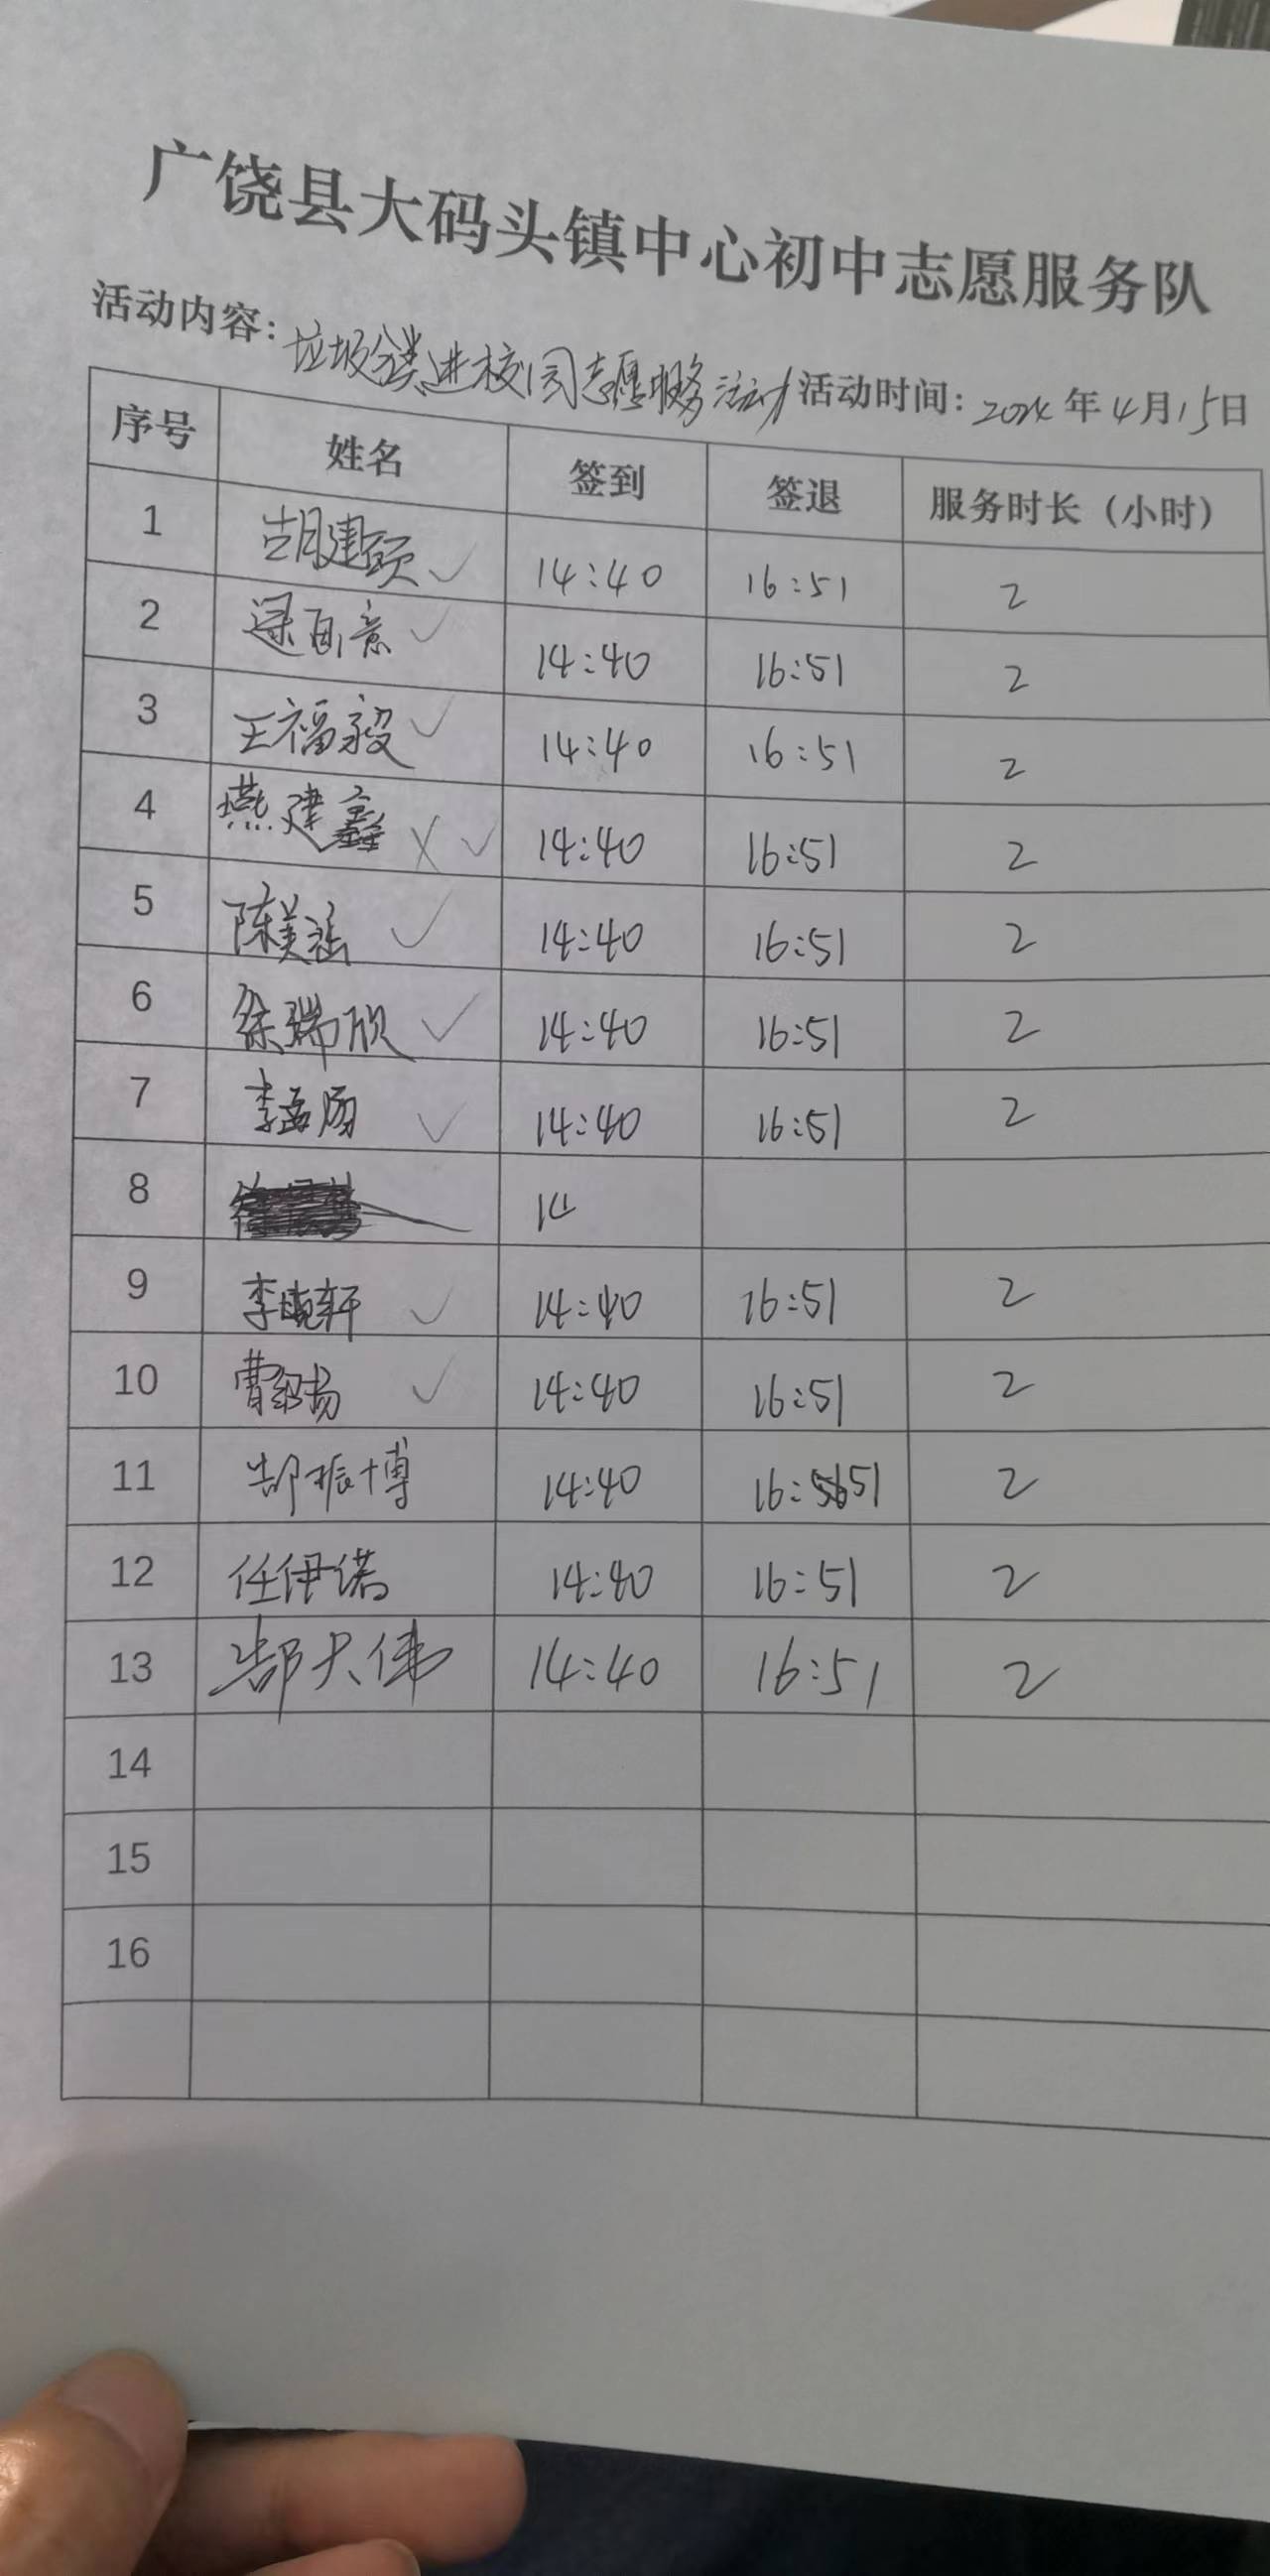 广饶县大码头镇中心初中志愿服务队
活动内容：垃圾分类进校园志愿服务活动 活动时间：2024年4月15日
序号 姓名 签到 签退 服务时长（小时）
1 胡建硕 14:40 16:51 2
2 梁百意 14:40 16:51 2
3 王福毅 14:40 16:51 2
4 燕建鑫 × ✓ 14:40 16:51 2
5 陈美涵 ✓ 14:40 16:51 2
6 徐瑞欣 ✓ 14:40 16:51 2
7 李孟 ✓ 14:40 16:51 2
8 14
9 李晓轩 ✓ 14:40 16:51 2
10 曹绍扬 ✓ 14:40 16:51 2
11 郜振博 14:40 16:51 2
12 任伊诺 14:40 16:51 2
13 郜大伟 14:40 16:51 2
14
15
16